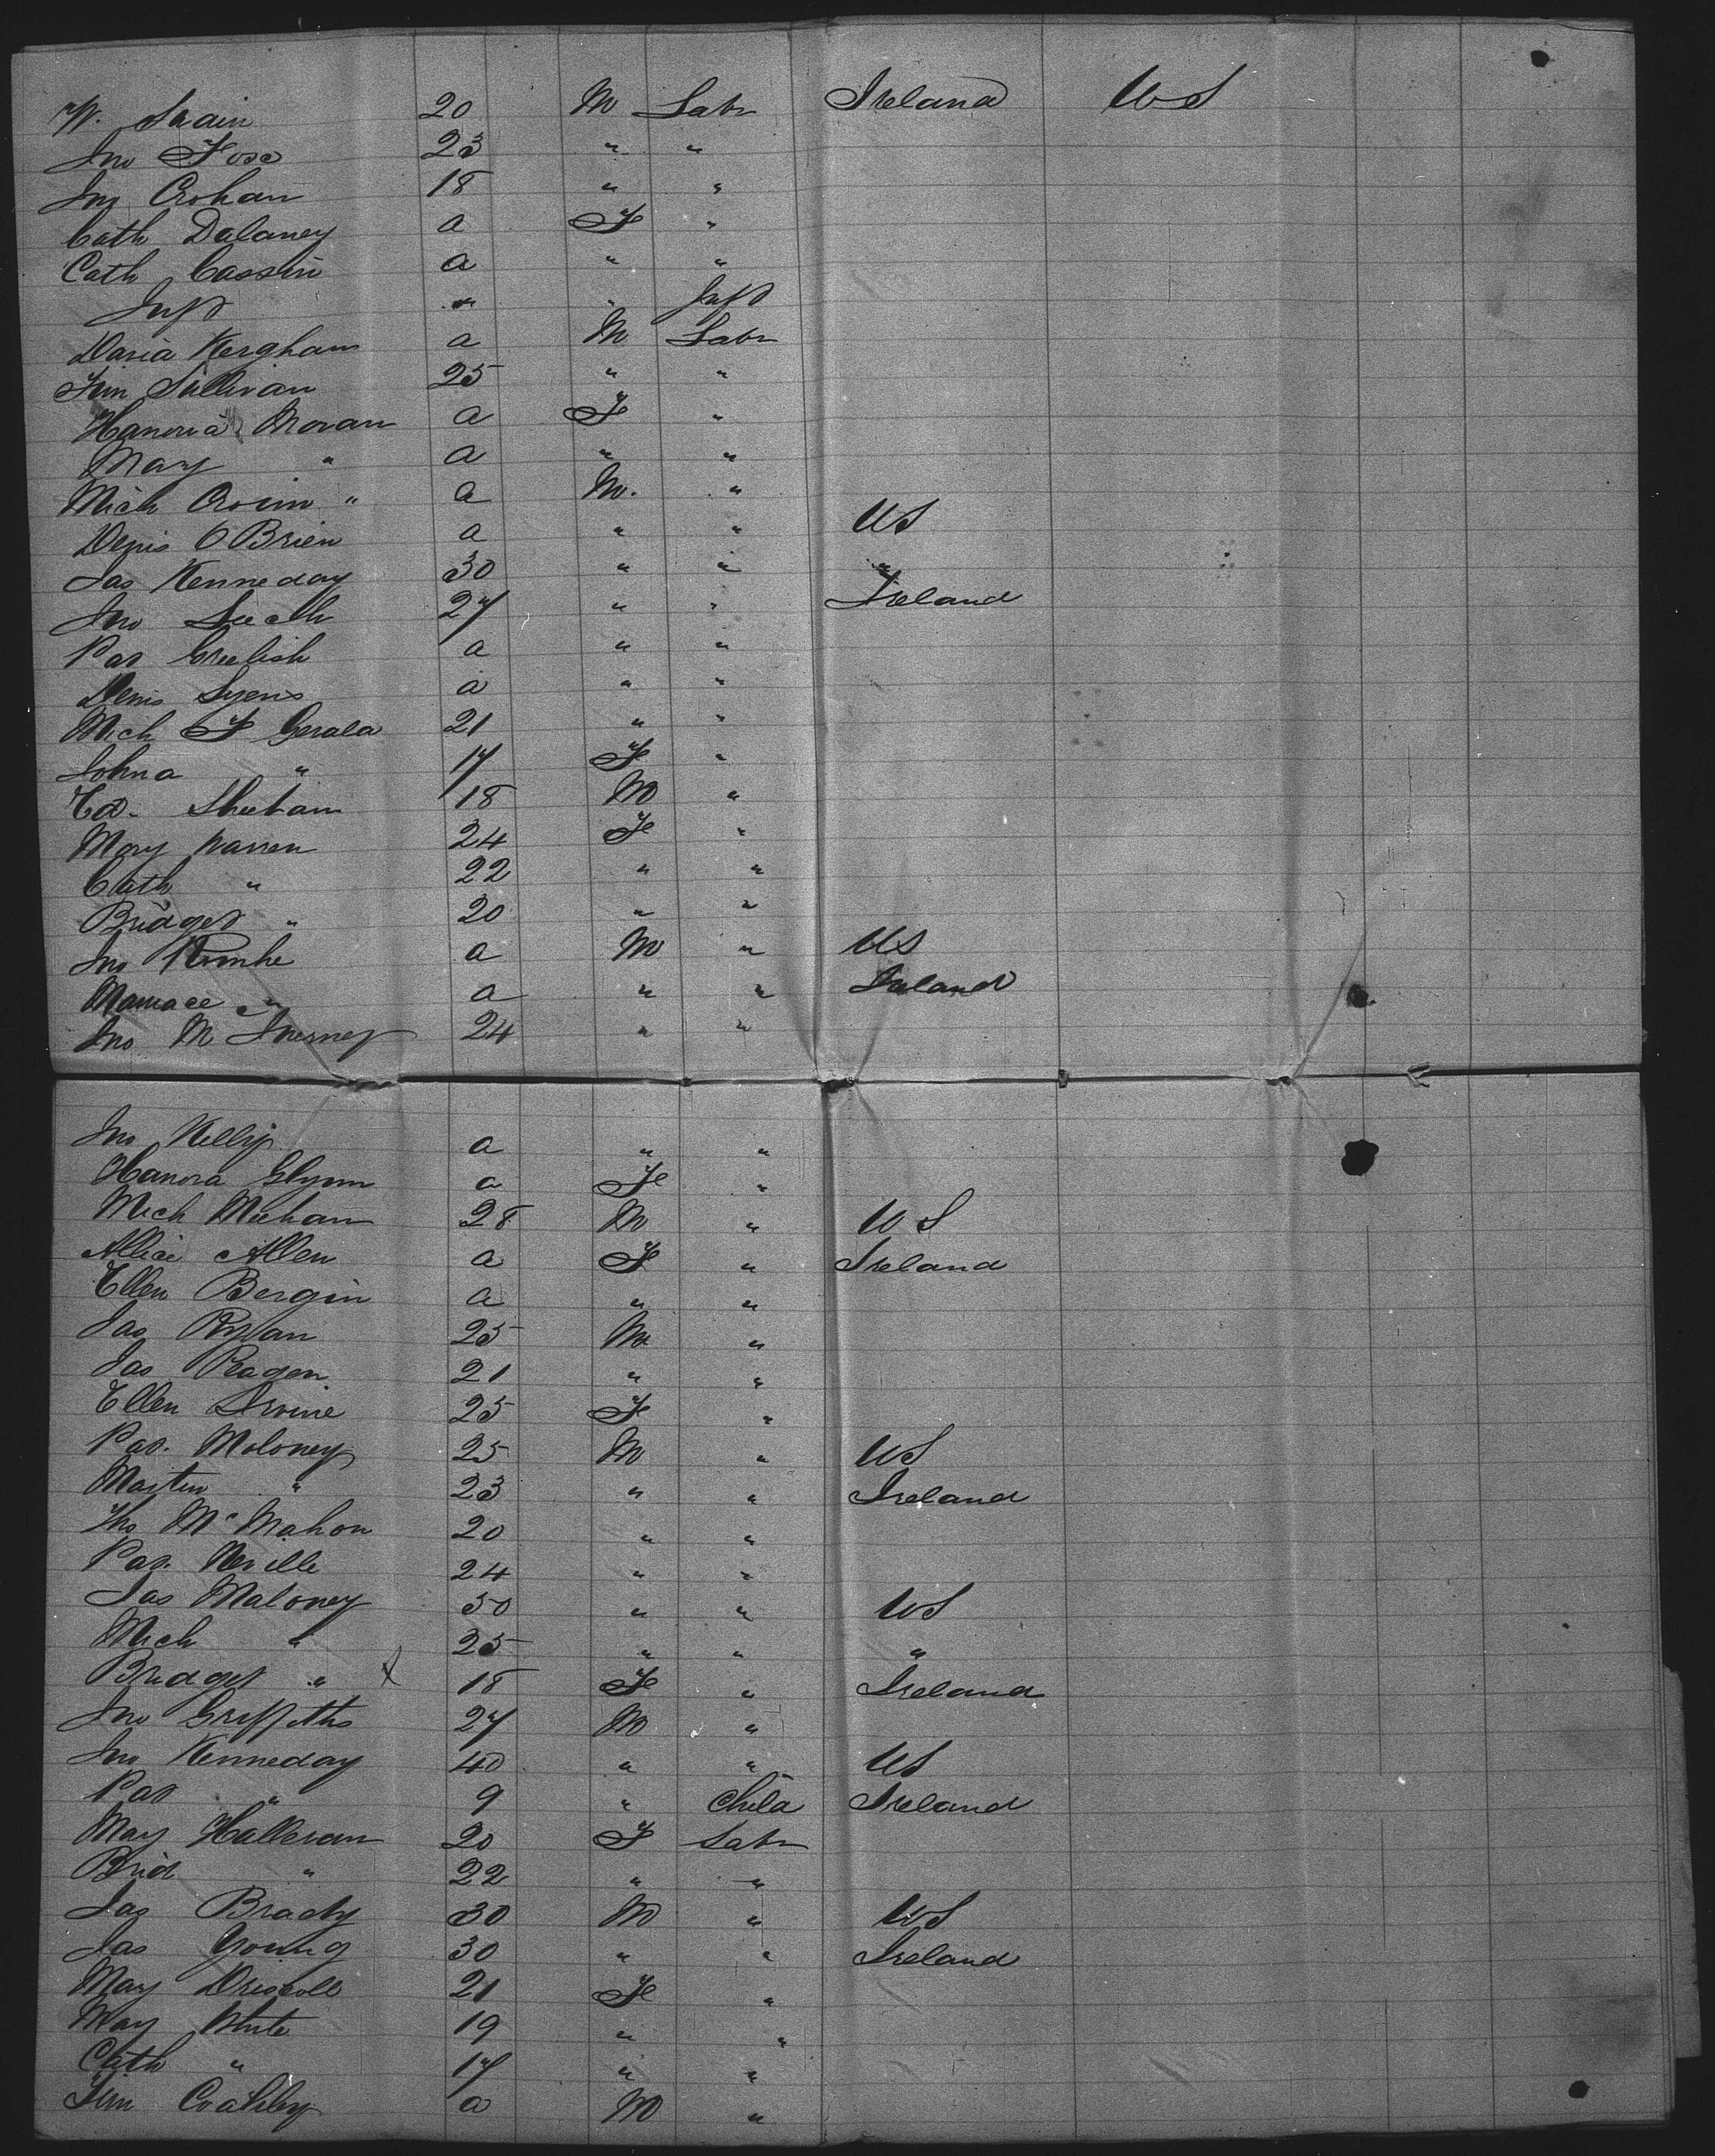 W. Swain 20 M Labr Ireland US
Jno Foso 23 " "
Jno Crohan 18 " "
Cath Dalaney a F "
Cath Cassin a " "
Inft " " Inft
Kergham a M Labr
Tim Sullivan 25 " "
Hanoria Moran a F "
Mary " a " "
Mich " a M. "
Denis O Brien a " " US
Jas Kenneday 30 " " "
Jno 27 " " Ireland
Pat Greelish a " "
Denis Lyens a " "
Mich F Gerald 21 " "
Johna " 17 F "
Ed. Sheehan 18 M "
Mary Warren 24 F "
Cath " 22 " "
Bridget " 20 " "
Jno a M " US
" a " " Ireland
Jno M Inerney 24 " "
Jno Kelly a " "
Hanora Glynn a F "
Mich Meehan 28 M " US
Allice Allen a F " Ireland
Ellen Bergin a " "
Jas Ryan 25 M "
Jas Ragen 21 " "
Ellen Irvine 25 F "
Pat. Moloney 25 M " US
Martin " 23 " " Ireland
Tho McMahon 20 " "
Pat. Neville 24 " "
Jas Maloney 50 " " US
Mich " 25 " " "
Bridget " X 18 F " Ireland
Jno Griffiths 27 M "
Jno Kenneday 40 " " US
Pat " 9 " Child Ireland
Mary Halleran 20 F Labr
Brid " 22 " "
Jas Brady 30 M " US
Jas Young 30 " " Ireland
Mary Driscoll 21 F "
Mary White 19 " "
Cath " 17 " "
Tim Coakley a M "